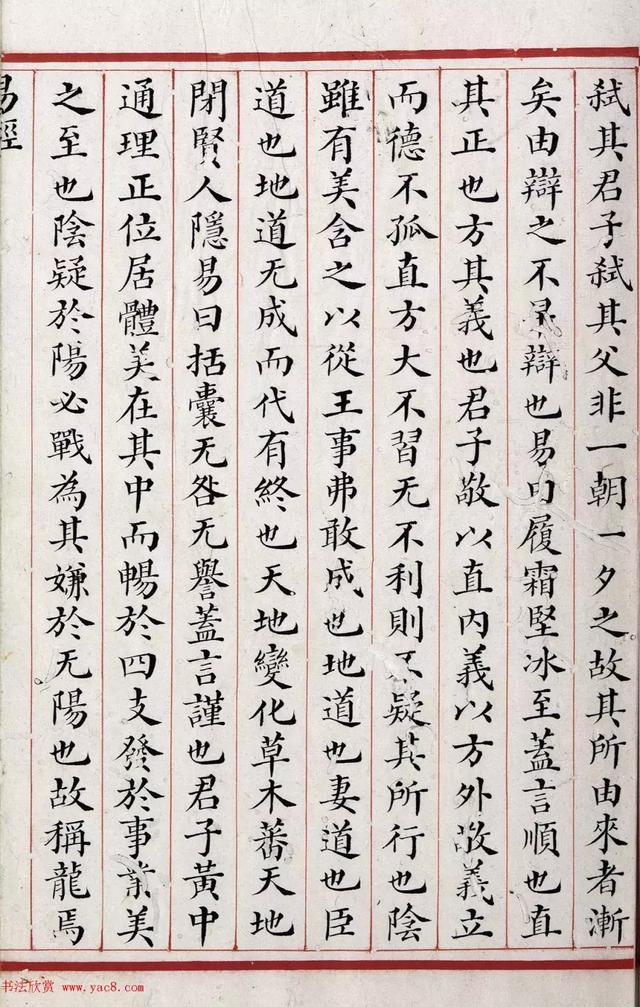 弑其君子弑其父非一朝一夕之故其所由來者漸
矣由辯之不早辯也易曰履霜堅冰至蓋言順也直
其正也方其義也君子敬以直內義以方外敬義立
而德不孤直方大不習无不利則不疑其所行也陰
雖有美含之以從王事弗敢成也地道也妻道也臣
道也地道无成而代有終也天地變化草木蕃天地
閉賢人隱易曰括囊无咎无譽蓋言謹也君子黃中
通理正位居體美在其中而暢於四支發於事業美
之至也陰疑於陽必戰為其嫌於无陽也故稱龍焉
易經
书法欣赏 www.yac8.com